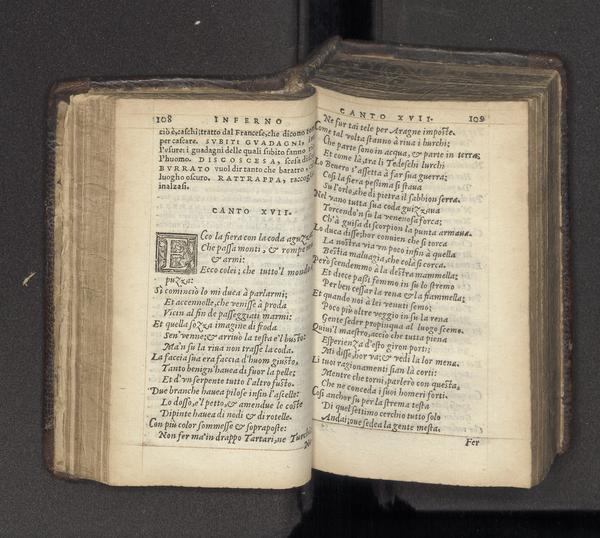 108 INFERNO
ciò è, caschi; tratto dal Francese, che dicono
per cascare. SVBITI GVADAGNI,
l'usure; i guadagni delle quali subito fanno
l'huomo. DISCOSCESA, scesa
BVRRATO vuol dir tanto che baratro,
luogho oscuro. RATTRAPPA,
inalzasi.
CANTO XVII.
ECco la fiera con la coda aguzza,
Che passa monti, & rompe
& armi:
Ecco colei; che tutto'l mondo
puzza:
Sì cominciò lo mi duca à parlarmi;
Et accennolle, che venisse à proda
Vicin al fin de passeggiati marmi:
Et quella sozza imagine di froda
Sen'venne; & arriuò la testa e'l busto:
Ma'n su la riua non trasse la coda.
La faccia sua era faccia d'huom giusto,
Tanto benign'hauea di fuor la pelle;
Et d'vn serpente tutto l'altro fusto.
Due branche hauea pilose infin l'ascelle:
Lo dosso, e'l petto, & amendue le coste
Dipinte hauea di nodi & di rotelle.
Con più color sommesse & sopraposte:
Non fer ma'in drappo Tartari, ne
CANTO XVII. 109
Ne fur tai tele per Aragne imposte.
Come tal volta stanno à riua i burchi;
Che parte sono in acqua, & parte in terra;
Et come là, tra li Tedeschi lurchi
Lo Beuero s'assetta à far sua guerra;
Così la fiera pessima si staua
Su l'orlo, che di pietra il sabbion serra.
Nel vano tutta sua coda guizzaua
Torcendo'n su la venenosa forca;
Ch'à guisa di scorpion la punta armaua.
Lo duca disse; hor conuien che si torca
La nostra via vn poco infin à quella
Bestia maluagia, che colà si corca.
Però scendemmo à la destra mammella;
Et diece passi femmo in su lo stremo
Per ben cessar la rena & la fiammella;
Et quando noi à lei venuti semo;
Poco più oltre veggio in su la rena
Gente seder propinqua al luogo scemo.
Quiui'l maestro, acciò che tutta piena
Esperienza d'esto giron porti;
Mi disse, hor va; & vedi la lor mena.
Li tuoi ragionamenti sian là corti:
Mentre che torni, parlerò con questa,
Che ne conceda i suoi homeri forti.
Così anchor su per la strema testa
Di quel settimo cerchio tutto solo
Andai; oue sedea la gente mesta.
Fer